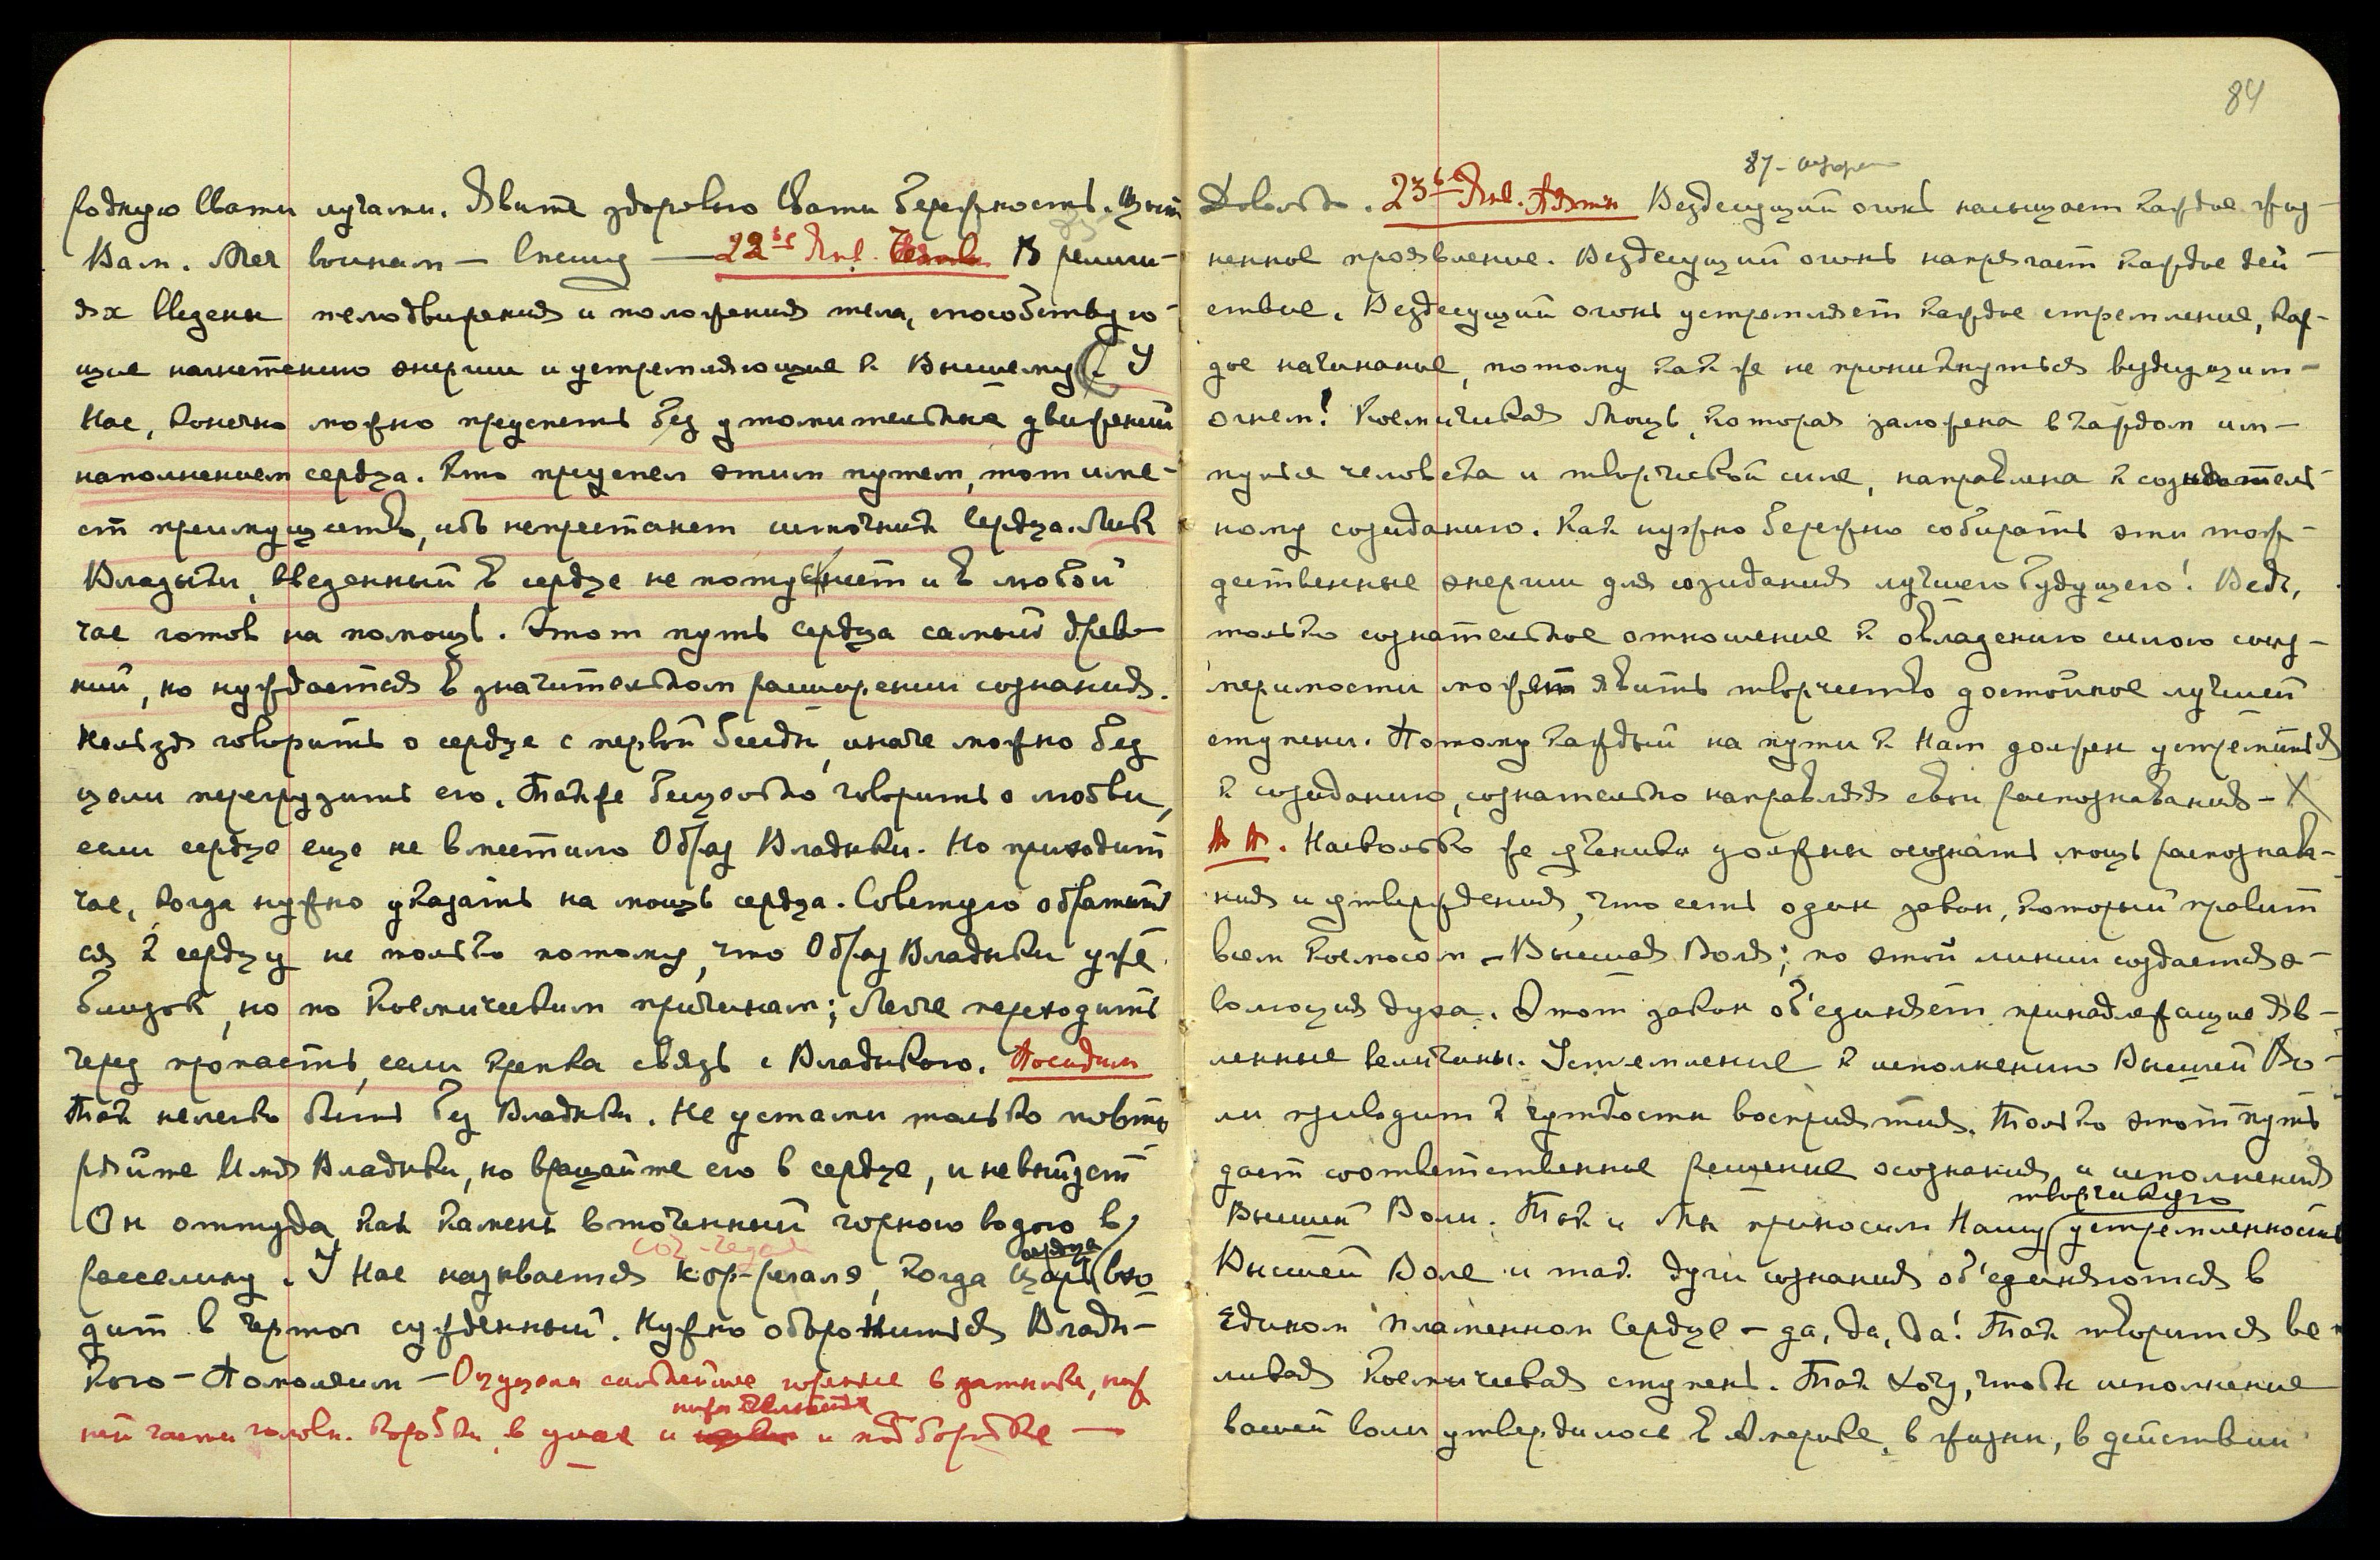 родную Свати лучами. Явите здоровью Свати бережность. Щит
Вам. Меч воинам — спешу — 22ое Янв. В религи-
ях введены телодвижения и положения тела, способствую-
щие нагнетению энергии и устремляющие к Высшему. У
Нас, конечно можно преуспеть без утомительных движений
наполнением сердца. Кто преуспел этим путем, тот име-
ет преимущество, ибо неперестанет источник сердца. Лик
Владыки, введенный в сердце не потускнеет и в любой
час готов на помощь. Этот путь сердца самый древ-
ний, но нуждается в значительном расширении сознания.
Нельзя говорить о сердце с первой беседы, иначе можно без
цели перегрузить его. Также бесцельно говорить о любви,
если сердце еще не вместило Образ Владыки. Но приходит
час, когда нужно указать на мощь сердца. Советую обратить
ся к сердцу не только потому, что Образ Владыки уже
близок, но по космическим причинам; Легче переходить
через пропасть, если крепка связь с Владыкою. Посидим
Так нелегко быть без Владыки. Не устами только повто
ряйте Имя Владыки, но вращайте его в сердце, и невыйдет
Он оттуда, как камень вточенный горною водою в
сердца
расселину. У Нас называется Кор-реалэ, когда Царь вхо
дит в чертог сужденный. Нужно оборониться Влады-
кою — Помолчим — Ощущала сильнейшие горение в затылке, ниж
ней части головн. коробки, в ушах и и подбородке —
84
87-
довольно. 23ье Янв. Вездесущий огонь насыщает каждое жиз-
ненное проявление. Вездесущий огонь напрягает каждое дей-
ствие. Вездесущий огонь устремляет каждое стремление, каж-
дое начинание, потому как же не проникнуться вездесущим-
огнем! Космическая Мощь, которая заложена в каждом им-
пульсе человека и творческой силе, направлена к сознатель-
ному созиданию. Как нужно бережно собирать эти тож-
дественные энергии для созидания лучшего будущего! Ведь,
только сознательное отношение к овладению силою соиз-
меримости может явить творчество достойное лучшей
ступени. Потому каждый на пути к Нам должен устремиться
к созиданию, сознательно направляя свои распознавания — X
Насколько же ученики должны осознать мощь распознав-
ния и утверждения, что есть один закон, который правит
всем космосом — Высшая Воля; по этой линии создается э-
волюция духа. Этот закон об'единяет принадлежащие яв-
ленные величины. Устремление к исполнению Высшей Во-
ли приводит к чуткости восприятия. Только этот путь
дает соответственное решение осознания и исполнения
творческую
Высшей Воли. Так и Мы приносим Нашу устремленность
Высшей Воле и так. Духи сознания об'единяются в
Едином Пламенном Сердце — да, да, да! Так творится ве-
ликая космическая ступень. Так хочу, чтобы исполнение
вашей воли утвердилось в Америке, в жизни, в действии